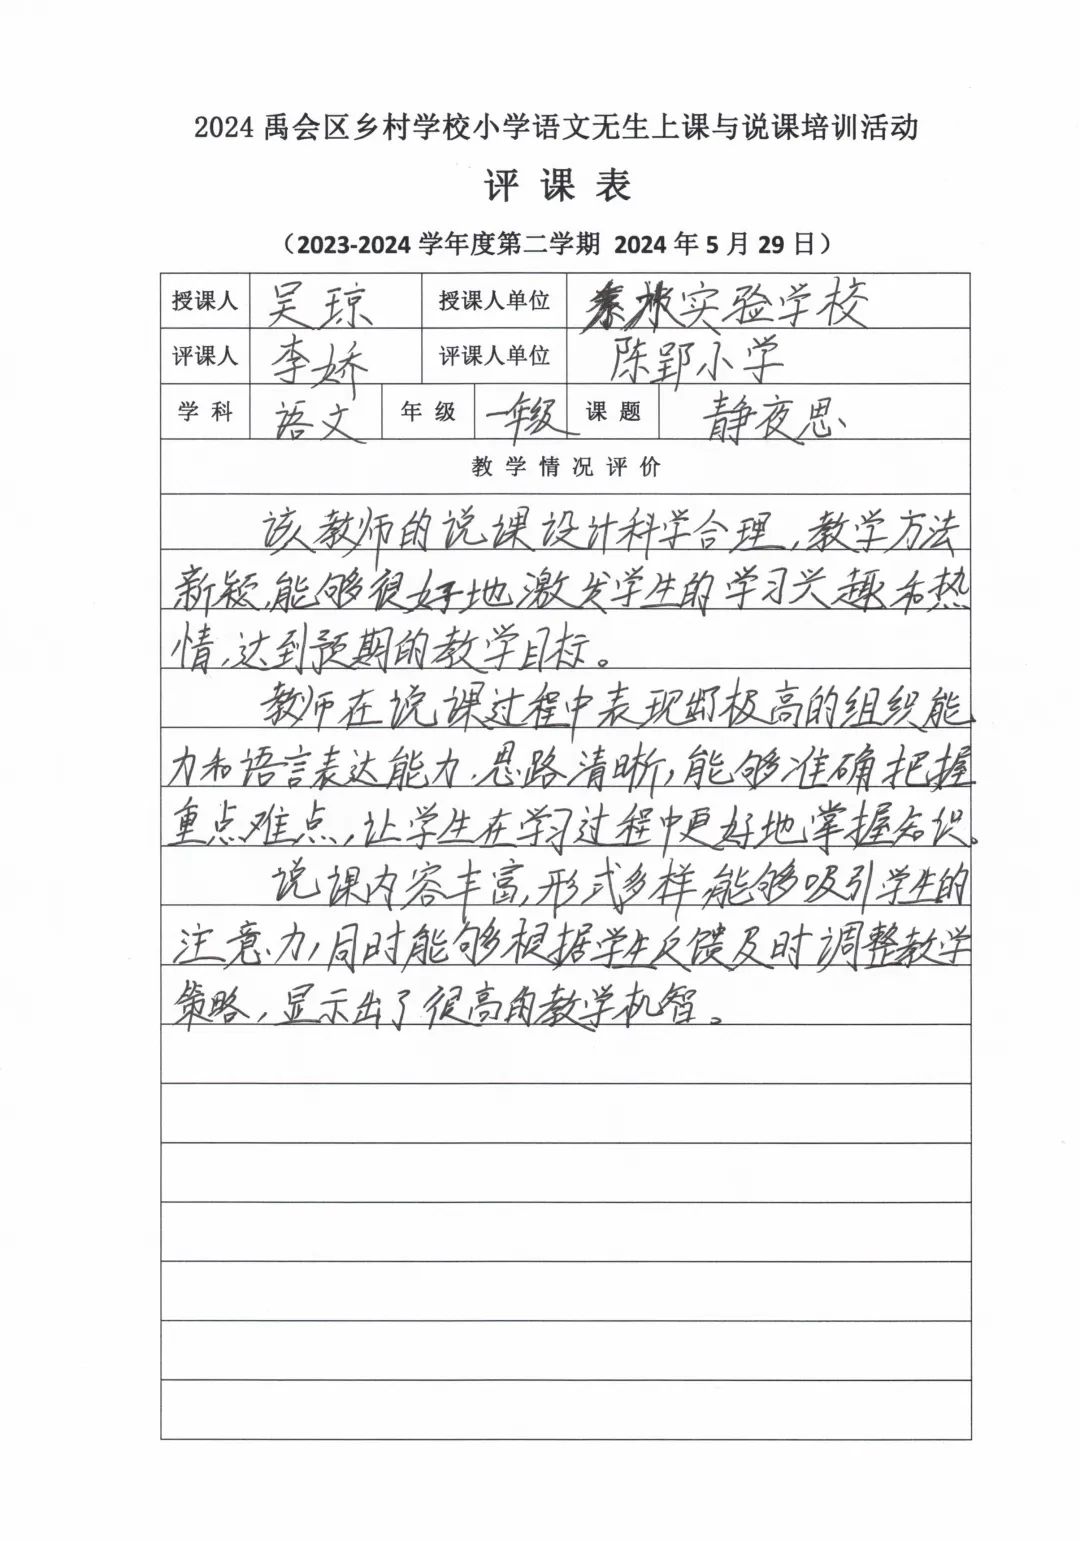 2024禹会区乡村学校小学语文无生上课与说课培训活动
评 课 表
（2023-2024 学年度第二学期 2024 年 5 月 29 日）
授课人 吴琼 授课人单位 实验学校
评课人 李娇 评课人单位 陈郢小学
学 科 语文 年 级 一年级 课 题 静夜思
教 学 情 况 评 价
该教师的说课设计科学合理,教学方法
新颖,能够很好地激发学生的学习兴趣和热
情,达到预期的教学目标。
教师在说课过程中表现出了极高的组织能
力和语言表达能力,思路清晰,能够准确把握
重点难点,让学生在学习过程中更好地掌握知识。
说课内容丰富,形式多样,能够吸引学生的
注意力,同时能够根据学生反馈及时调整教学
策略,显示出了很高的教学机智。